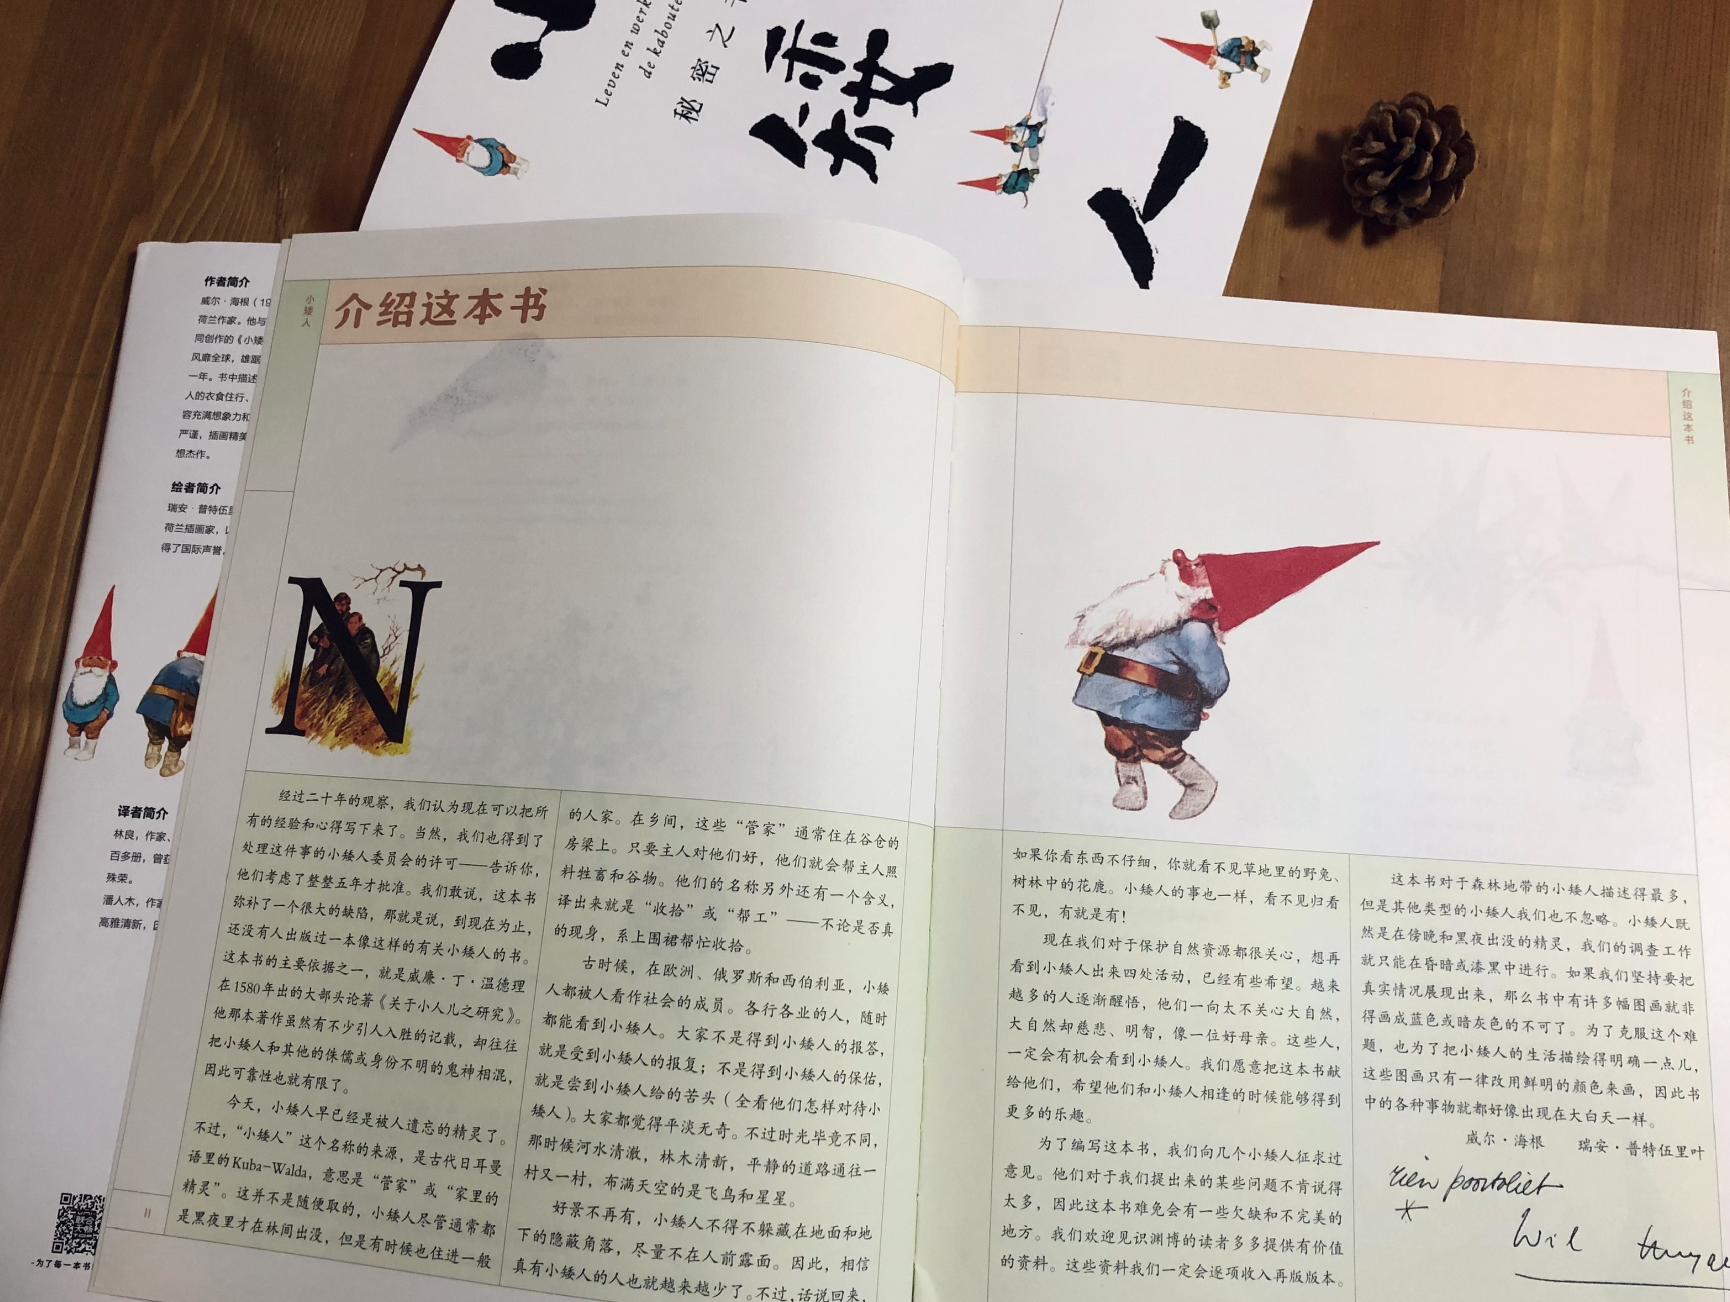 Leven en werk
de kaboute
秘密之
矮
人
作者简介
威尔·海根(19
荷兰作家。他与
同创作的《小矮
风靡全球,雄踞
一年。书中描述
人的衣食住行、
容充满想象力和
严谨,插画精美
想杰作。
绘者简介
瑞安·普特伍里
荷兰插画家,以
得了国际声誉,
译者简介
林良,作家、
百多册,曾获
殊荣。
潘人木,作家
高雅清新,因
-为了每一本书
小矮人
介绍这本书
N
经过二十年的观察,我们认为现在可以把所
有的经验和心得写下来了。当然,我们也得到了
处理这件事的小矮人委员会的许可——告诉你,
他们考虑了整整五年才批准。我们敢说,这本书
弥补了一个很大的缺陷,那就是说,到现在为止,
还没有人出版过一本像这样的有关小矮人的书。
这本书的主要依据之一,就是威廉·丁·温德理
在1580年出的大部头论著《关于小人儿之研究》。
他那本著作虽然有不少引人入胜的记载,却往往
把小矮人和其他的侏儒或身份不明的鬼神相混,
因此可靠性也就有限了。
今天,小矮人早已经是被人遗忘的精灵了。
不过,“小矮人”这个名称的来源,是古代日耳曼
语里的Kuba-Walda,意思是“管家”或“家里的
精灵”。这并不是随便取的,小矮人尽管通常都
是黑夜里才在林间出没,但是有时候也住进一般
的人家。在乡间,这些“管家”通常住在谷仓的
房梁上。只要主人对他们好,他们就会帮主人照
料牲畜和谷物。他们的名称另外还有一个含义,
译出来就是“收拾”或“帮工”——不论是否真
的现身,系上围裙帮忙收拾。
古时候,在欧洲、俄罗斯和西伯利亚,小矮
人都被人看作社会的成员。各行各业的人,随时
都能看到小矮人。大家不是得到小矮人的报答,
就是受到小矮人的报复;不是得到小矮人的保佑,
就是尝到小矮人给的苦头(全看他们怎样对待小
矮人)。大家都觉得平淡无奇。不过时光毕竟不同,
那时候河水清澈,林木清新,平静的道路通往一
村又一村,布满天空的是飞鸟和星星。
好景不再有,小矮人不得不躲藏在地面和地
下的隐蔽角落,尽量不在人前露面。因此,相信
真有小矮人的人也就越来越少了。不过,话说回来,
11
介绍这本书
如果你看东西不仔细,你就看不见草地里的野兔、
树林中的花鹿。小矮人的事也一样,看不见归看
不见,有就是有!
现在我们对于保护自然资源都很关心,想再
看到小矮人出来四处活动,已经有些希望。越来
越多的人逐渐醒悟,他们一向太不关心大自然,
大自然却慈悲、明智,像一位好母亲。这些人,
一定会有机会看到小矮人。我们愿意把这本书献
给他们,希望他们和小矮人相逢的时候能够得到
更多的乐趣。
为了编写这本书,我们向几个小矮人征求过
意见。他们对于我们提出来的某些问题不肯说得
太多,因此这本书难免会有一些欠缺和不完美的
地方。我们欢迎见识渊博的读者多多提供有价值
的资料。这些资料我们一定会逐项收入再版版本。
这本书对于森林地带的小矮人描述得最多,
但是其他类型的小矮人我们也不忽略。小矮人既
然是在傍晚和黑夜出没的精灵,我们的调查工作
就只能在昏暗或漆黑中进行。如果我们坚持要把
真实情况展现出来,那么书中有许多幅图画就非
得画成蓝色或暗灰色的不可了。为了克服这个难
题,也为了把小矮人的生活描绘得明确一点儿,
这些图画只有一律改用鲜明的颜色来画,因此书
中的各种事物就都好像出现在大白天一样。
威尔·海根 瑞安·普特伍里叶
rien poortvliet
Wil